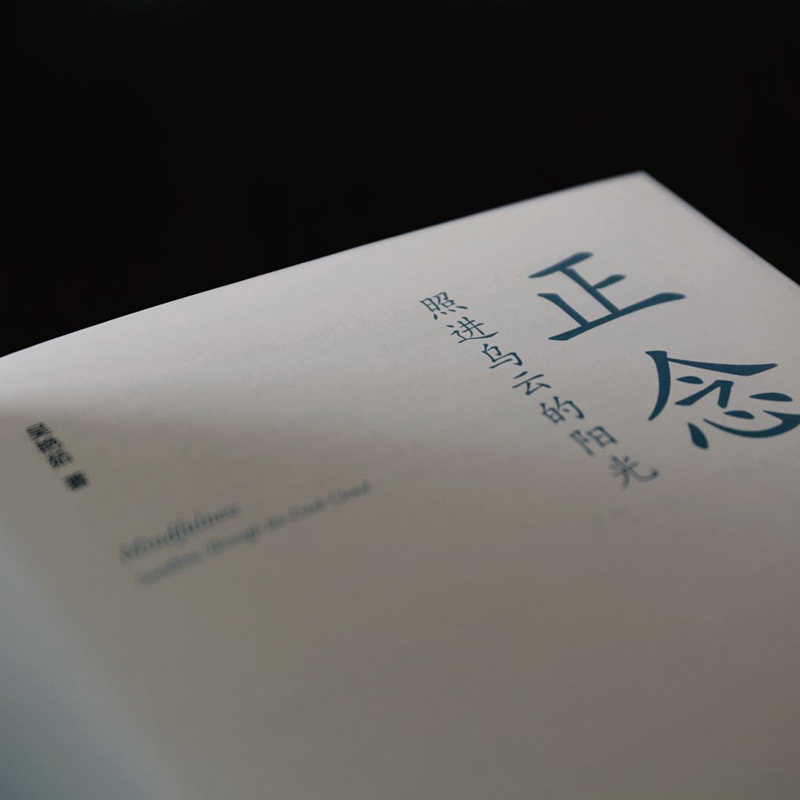 正念
照进乌云的阳光
吴艳茹 著
Mindfulness
Sunshine Through the Dark Cloud